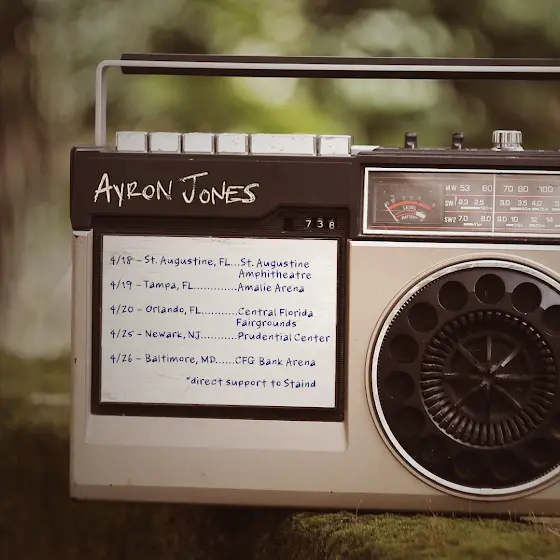 AYRON JONES
738
LEVEL
BATTERY
MW 53 60 70 80 100
SW1 2.3 2.5 3.0 3.5 4.0
SW2 7.0 8.0 9.0 10 12
4/18 – St. Augustine, FL...St. Augustine
Amphitheatre
4/19 – Tampa, FL.............Amalie Arena
4/20 – Orlando, FL...........Central Florida
Fairgrounds
4/25 – Newark, NJ...........Prudential Center
4/26 – Baltimore, MD......CFG Bank Arena
*direct support to Staind